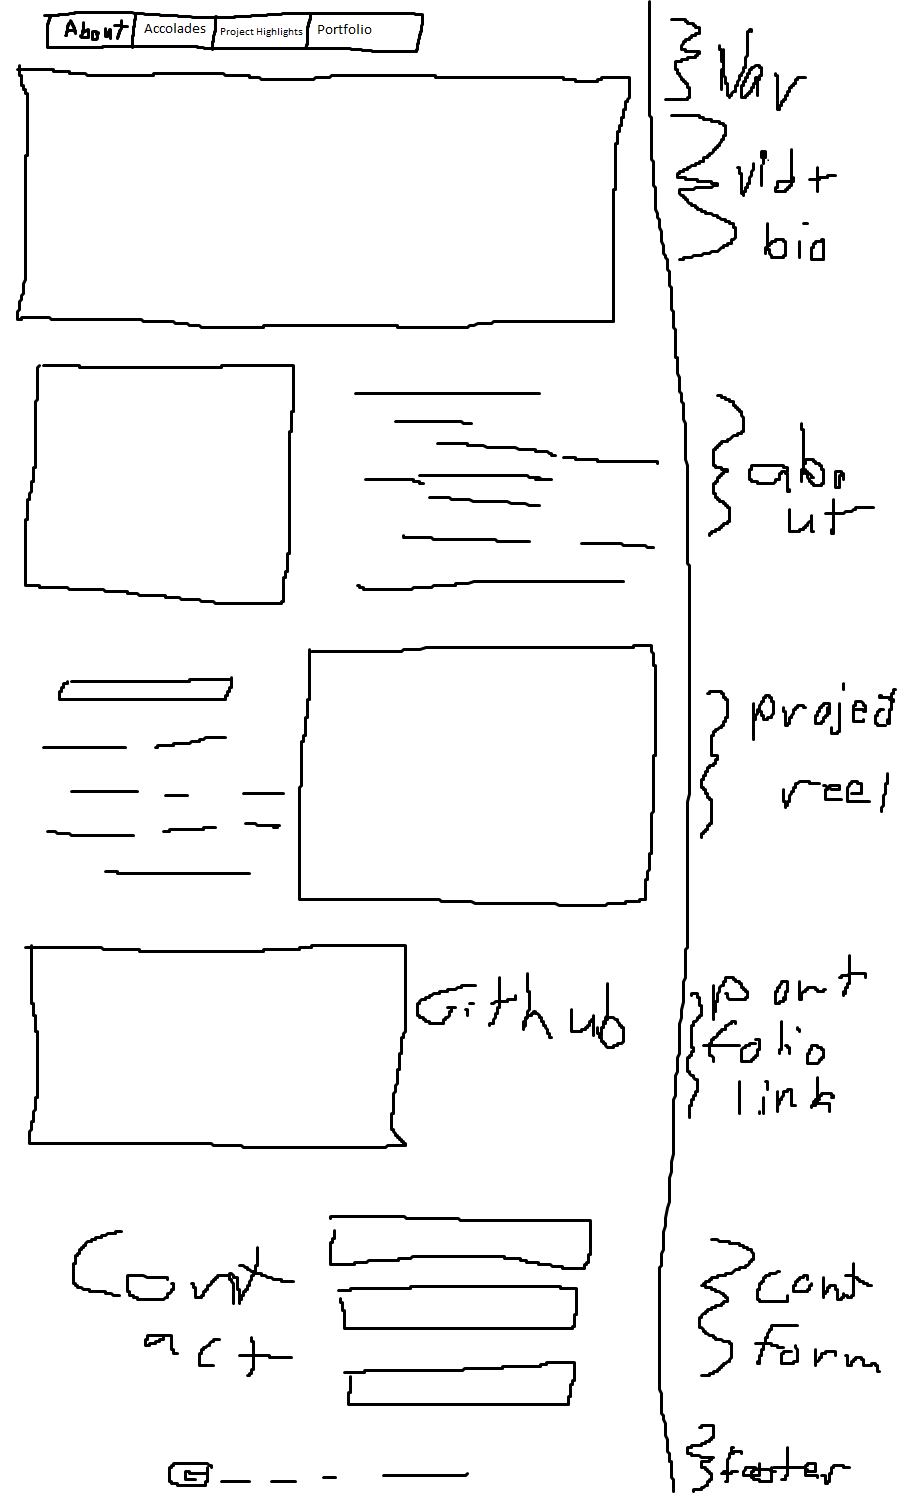 About Accolades Project Highlights Portfolio
Nav
vid +
bio
abo
ut
project
reel
Github
port
folio
link
Cont
act
cont
form
footer